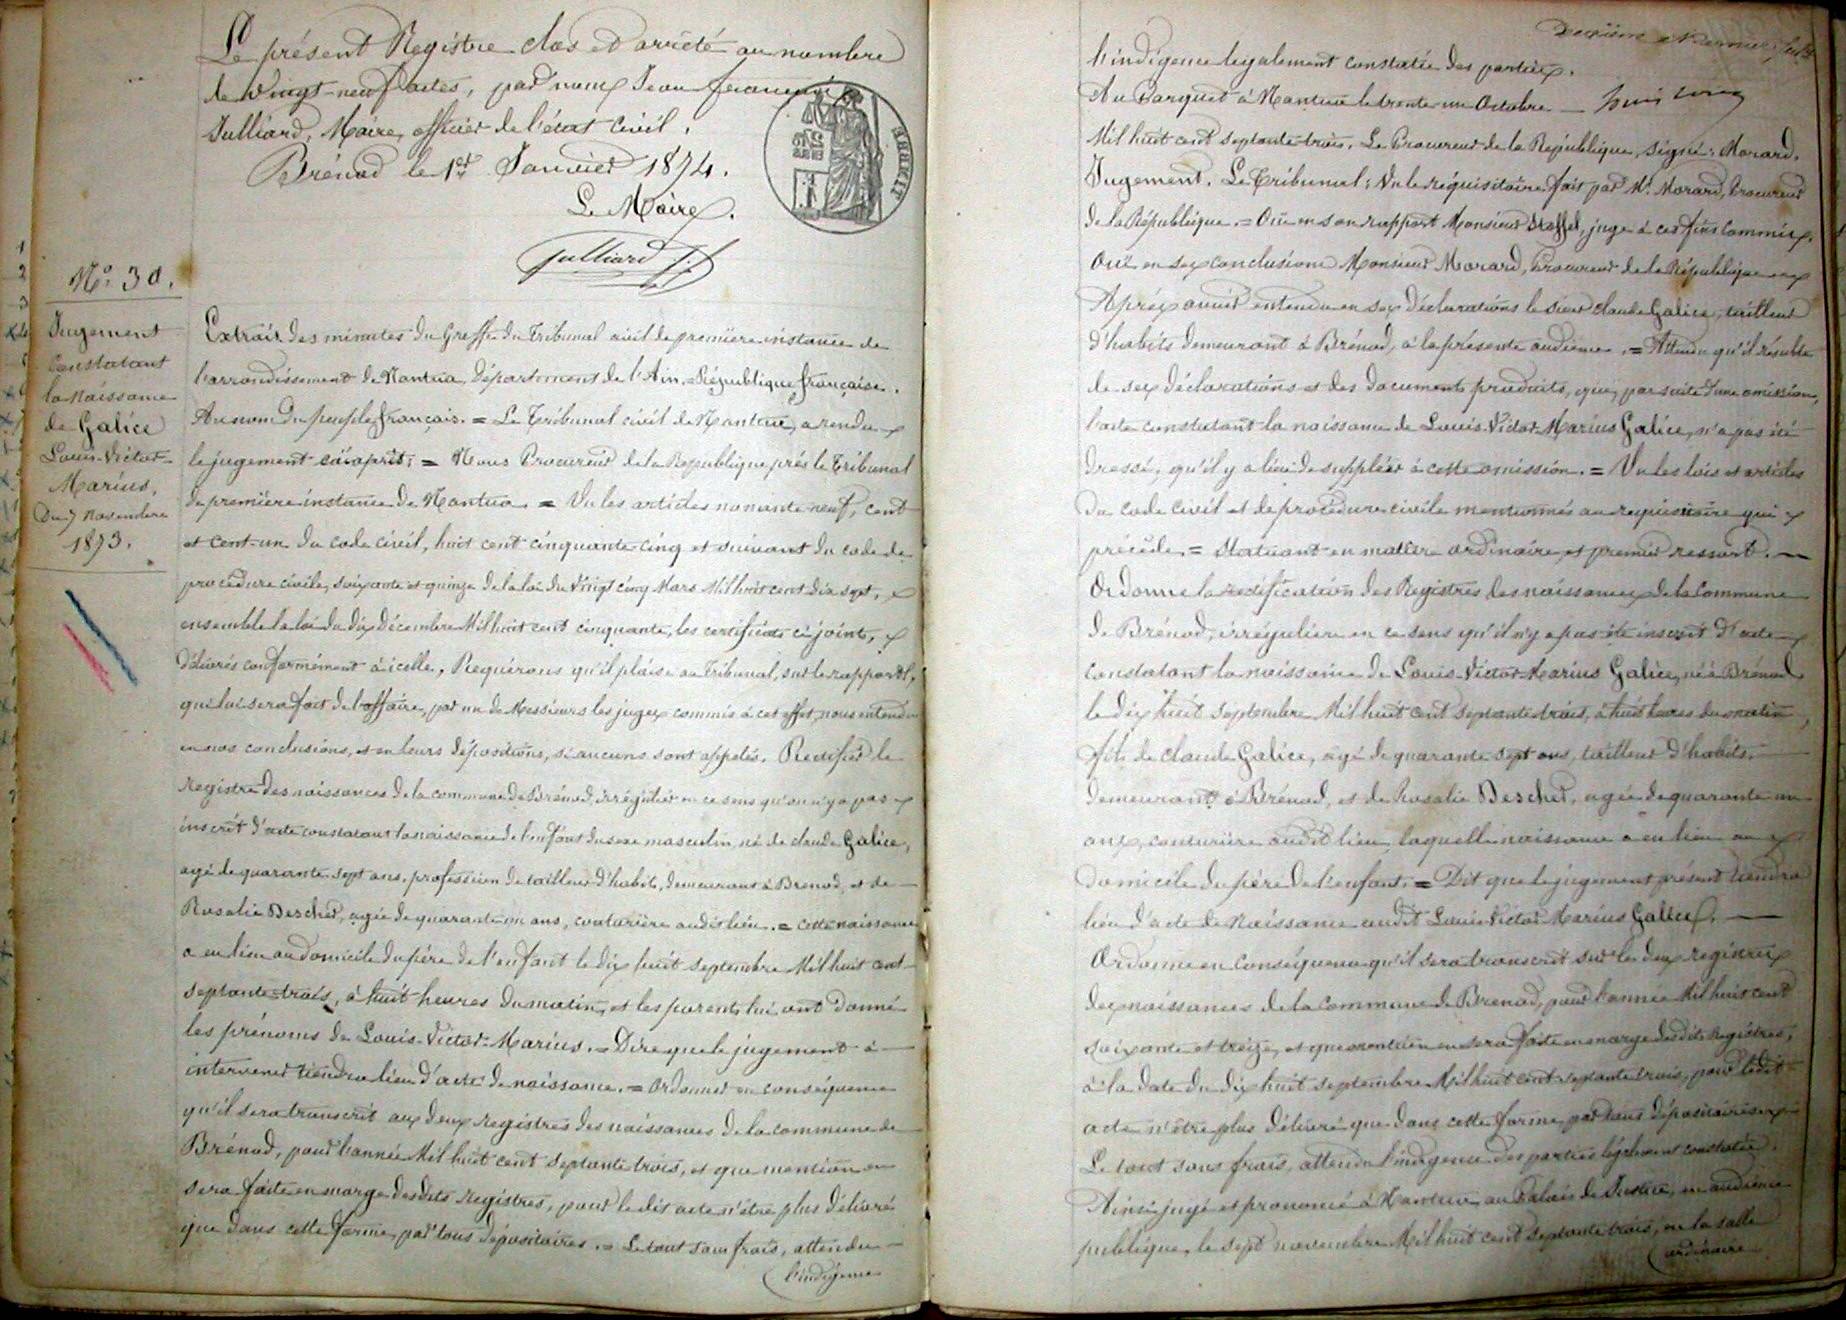 Le présent Registre clos et arrêté au nombre
de vingt-neuf actes, par nous Jean françois
Julliard, Maire, officier de l'état civil.
Brénod le 1er Janvier 1874.
Le Maire.
Julliard J. f
No. 30.
Jugement
Constatant
la naissance
de Galice
Louis-Victor-
Marius.
Du 7 novembre
1873.
Extrait des minutes du Greffe du Tribunal civil de première instance de
l'arrondissement de Nantua, Département de l'Ain. République française.
Au nom du peuple français. = Le Tribunal civil de Nantua, a rendu
le jugement ci-après; = Nous Procureur de la République près le Tribunal
de première instance de Nantua = Vu les articles nonante-neuf, cent
et cent-un du code civil, huit cent cinquante-cinq et suivant du code de
procédure civile, soixante et quinze de la loi du Vingt cinq Mars Mil huit cent dix sept,
ensemble la loi du dix Décembre Mil huit cent cinquante, les certificats ci-joints,
délivrés conformément à icelle, Requérons qu'il plaise au Tribunal, sur le rapport
qui lui sera fait de l'affaire, par un de Messieurs les juges commis à cet effet, nous entendu
en nos conclusions, et en leurs dépositions, si aucuns sont appelés. Rectifier le
registre des naissances de la commune de Brénod, irrégulier en ce sens qu'on n'y a pas
inscrit d'acte constatant la naissance de l'enfant du sexe masculin, né de claude Galice,
agé de quarante sept ans, profession de tailleur d'habits, demeurant à Brénod, et de
Rosalie Descher, agée de quarante un ans, couturière audit lieu. = cette naissance
a eu lieu au domicile du père de l'enfant le dix huit septembre Mil huit cent
septante-trois, à huit heures du matin, et les parents lui ont donné
les prénoms de Louis-Victor-Marius. = Dire que le jugement à
intervenir tiendra lieu d'acte de naissance. = Ordonner en conséquence
qu'il sera transcrit aux deux registres des naissances de la commune de
Brénod, pour l'année Mil huit cent septante trois, et que mention en
sera faite en marge desdits registres, pour le dit acte n'être plus délivré
que dans cette forme, par tous dépositaires. = Le tout sans frais, attendu
l'indigence
Deuxième et dernier
l'indigence légalement constatée des parties.
Au Parquet à Nantua le trente-un Octobre
Mil huit cent septante-trois. Le Procureur de la République, signé: Morard.
Jugement. Le Tribunal: Vu le réquisitoire fait par Mr. Morard, Procureur
de la République. = Ouï en son rapport Monsieur Stoffel, juge à ces fins commis.
Ouï en ses conclusions Monsieur Morard, Procureur de la République
Après avoir entendu en ses déclarations le sieur claude Galice, tailleur
d'habits demeurant à Brénod, à la présente audience. = Attendu qu'il résulte
de ses déclarations et des documents produits, que, par suite d'une omission,
l'acte constatant la naissance de Louis-Victor-Marius Galice, n'a pas été
dressé, qu'il y a lieu de suppléer à cette omission. = Vu les lois et articles
du code civil et de procédure civile mentionnés au réquisitoire qui
précède = Statuant en matière ordinaire et premier ressort.
Ordonne la rectification des Registres des naissances de la Commune
de Brénod, irrégulière en ce sens qu'il n'y a pas été inscrit d'acte
constatant la naissance de Louis-Victor-Marius Galice, né à Brénod
le dix huit septembre Mil huit cent septante trois, à huit heures du matin,
fils de claude Galice, agé de quarante sept ans, tailleur d'habits,
demeurant à Brénod, et de Rosalie Descher, agée de quarante un
ans, couturière audit lieu, laquelle naissance a eu lieu au
domicile du père de l'enfant. = Dit que le jugement présent tiendra
lieu d'acte de naissance audit Louis-Victor Marius Galice.
Ordonne en conséquence qu'il sera transcrit sur les deux registres
des naissances de la commune de Brénod, pour l'année Mil huit cent
soixante et treize, et que mention en sera faite en marge desdits registres,
à la date du dix huit septembre Mil huit cent septante trois, pour ledit
acte n'être plus délivré que dans cette forme par tous dépositaires.
Le tout sans frais, attendu l'indigence des parties légalement constatée.
Ainsi jugé et prononcé à Nantua, au Palais de Justice, en audience
publique, le sept novembre Mil huit cent septante trois, en la salle
ordinaire